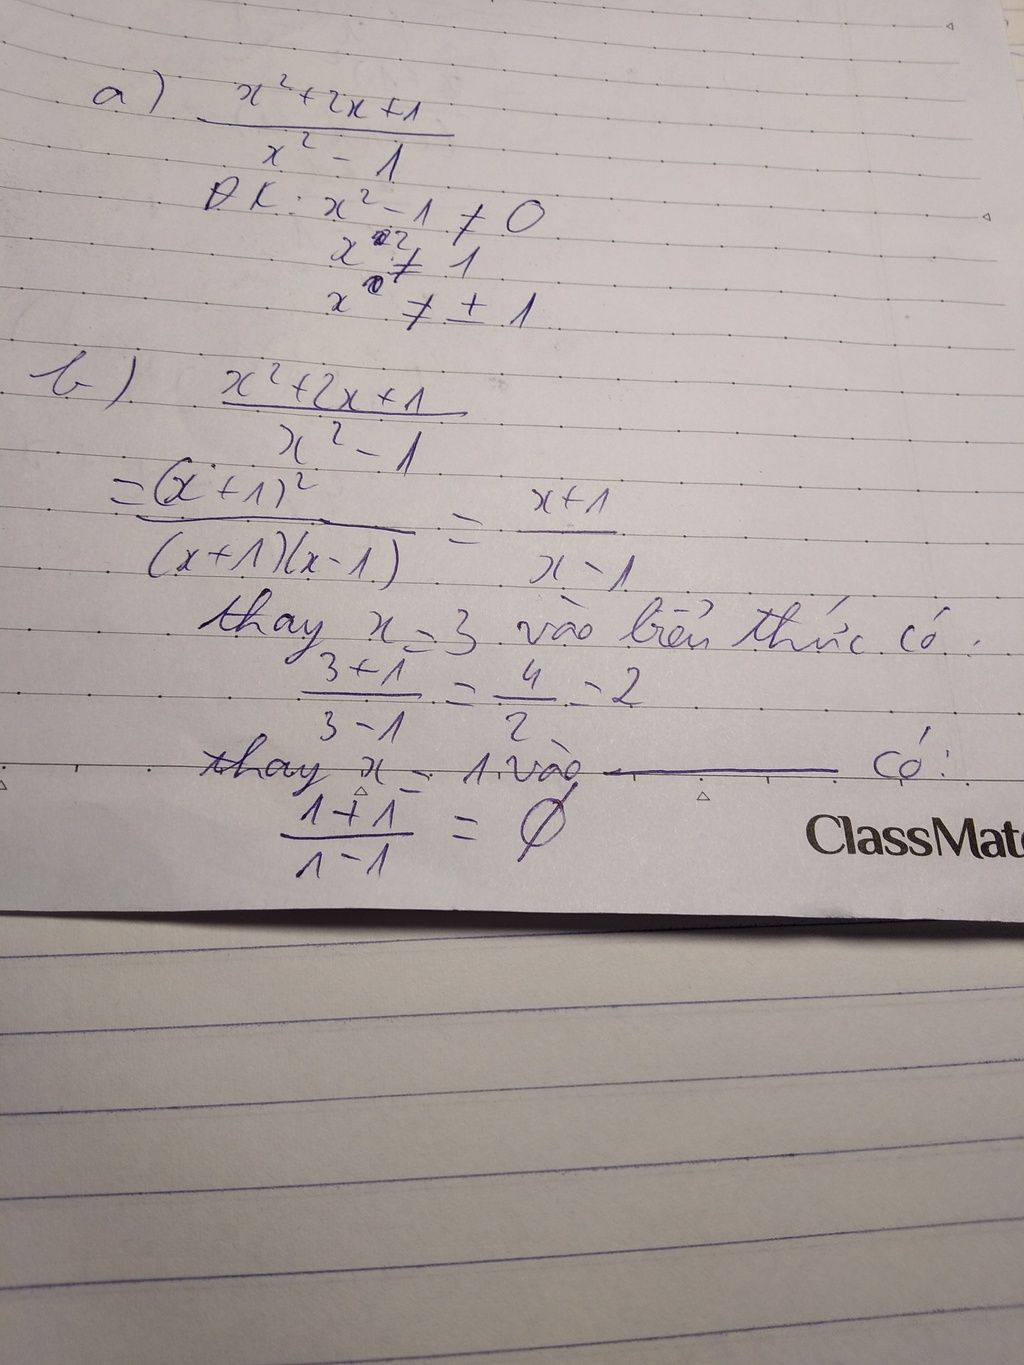 a) x²+2x+1
x² - 1
ĐK: x² - 1 ≠ 0
x² ≠ 1
x ≠ ± 1
b) x²+2x+1
x² - 1
= (x+1)² / (x+1)(x-1) = x+1 / x-1
thay x = 3 vào biểu thức có:
3+1 / 3-1 = 4 / 2 = 2
thay x = 1 vào ——— có:
1+1 / 1-1 = ∅
ClassMat